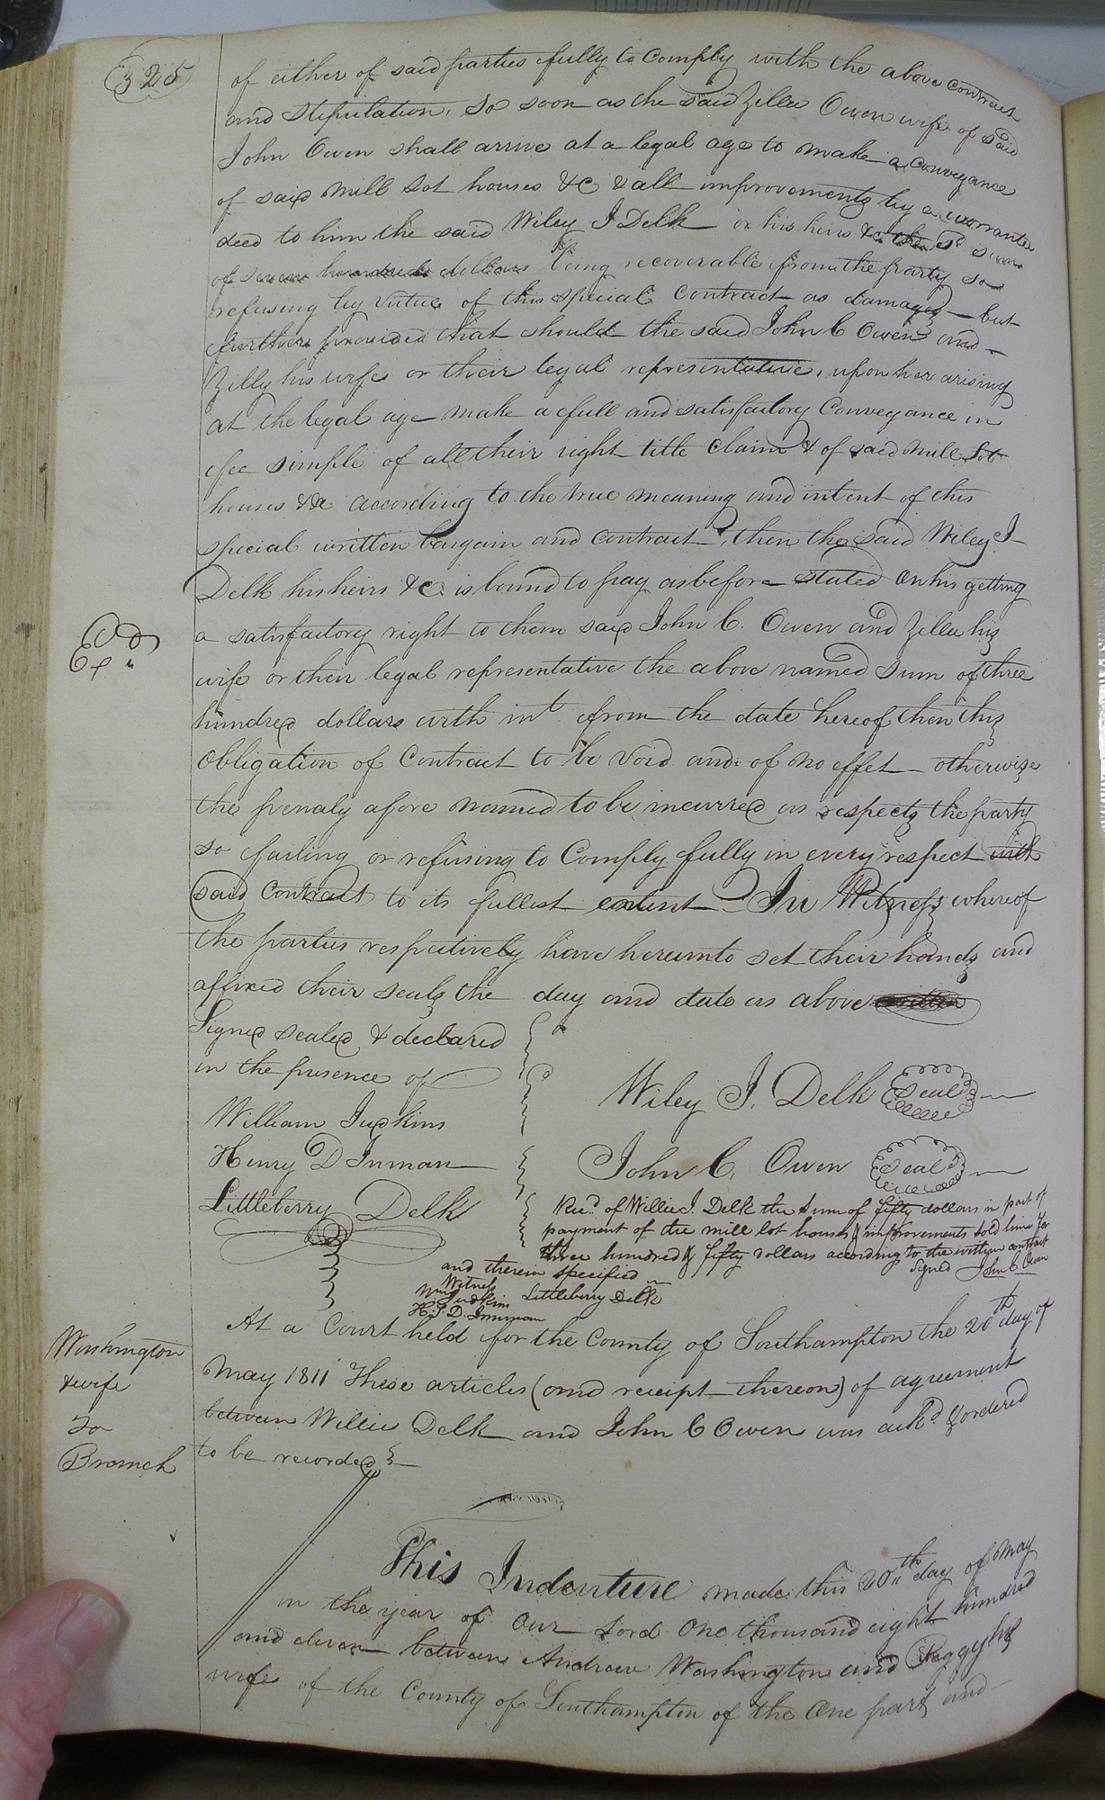 325
of either of said parties fully to Comply with the above contract
and Stipulation, So soon as the said Zilla Owen wife of said
John Owen shall arrive at a legal age to make a conveyance
of said Mill Lot houses &c & all improvements by a warrante
deed to him the said Wiley J Delk or his heirs &c the sd sum
of seven hundred dollars being recoverable from the party so
refusing by virtue of this special contract as damages - but
further provided that should the said John C Owen and
Zilly his wife or their legal representative, upon her arising
at the legal age make a full and satisfactory Conveyance in
fee simple of all their right title claim & of said Mill Lot
houses &c according to the true meaning and intent of this
special written bargain and Contract, then the said Wiley J
Delk his heirs &c. is bound to pay as before stated on his getting
a satisfactory right to them said John C. Owen and Zilla his
wife or their legal representative the above named Sum of three
hundred dollars with int from the date hereof then this
Obligation of Contract to be void and of no effet - otherwise
the penaly afore named to be incurred as respects the party
so failing or refusing to Comply fully in every respect with
said Contract to its fullest extent In Witness whereof
the parties respectively have hereunto set their hands and
affixed their seals the day and date as above
Signed sealed & declared
in the presence of
Wiley J. Delk Seal
William Judkins
Henry D Inman
John C. Owen Seal
Littleberry Delk
Recd. of Willie J. Delk the Sum of fifty dollars in part of
payment of the mill lot houses & improvements sold him for
three hundred & fifty dollars according to the written contract
and therein specified Signed John C Owen
Witness
Wm Judkins Littleberry Delk
H. D. Inmman
At a Court held for the County of Southampton the 20th day of
May 1811 These articles (and receipt thereon) of agreement
between Willie Delk and John C Owen was ackd & ordered
to be recorded
Washington
& wife
To
Branch
This Indenture made this 20th day of May
in the year of Our Lord One thousand eight hundred
and eleven between Andrew Washington and Peggy his
wife of the County of Southampton of the One part and